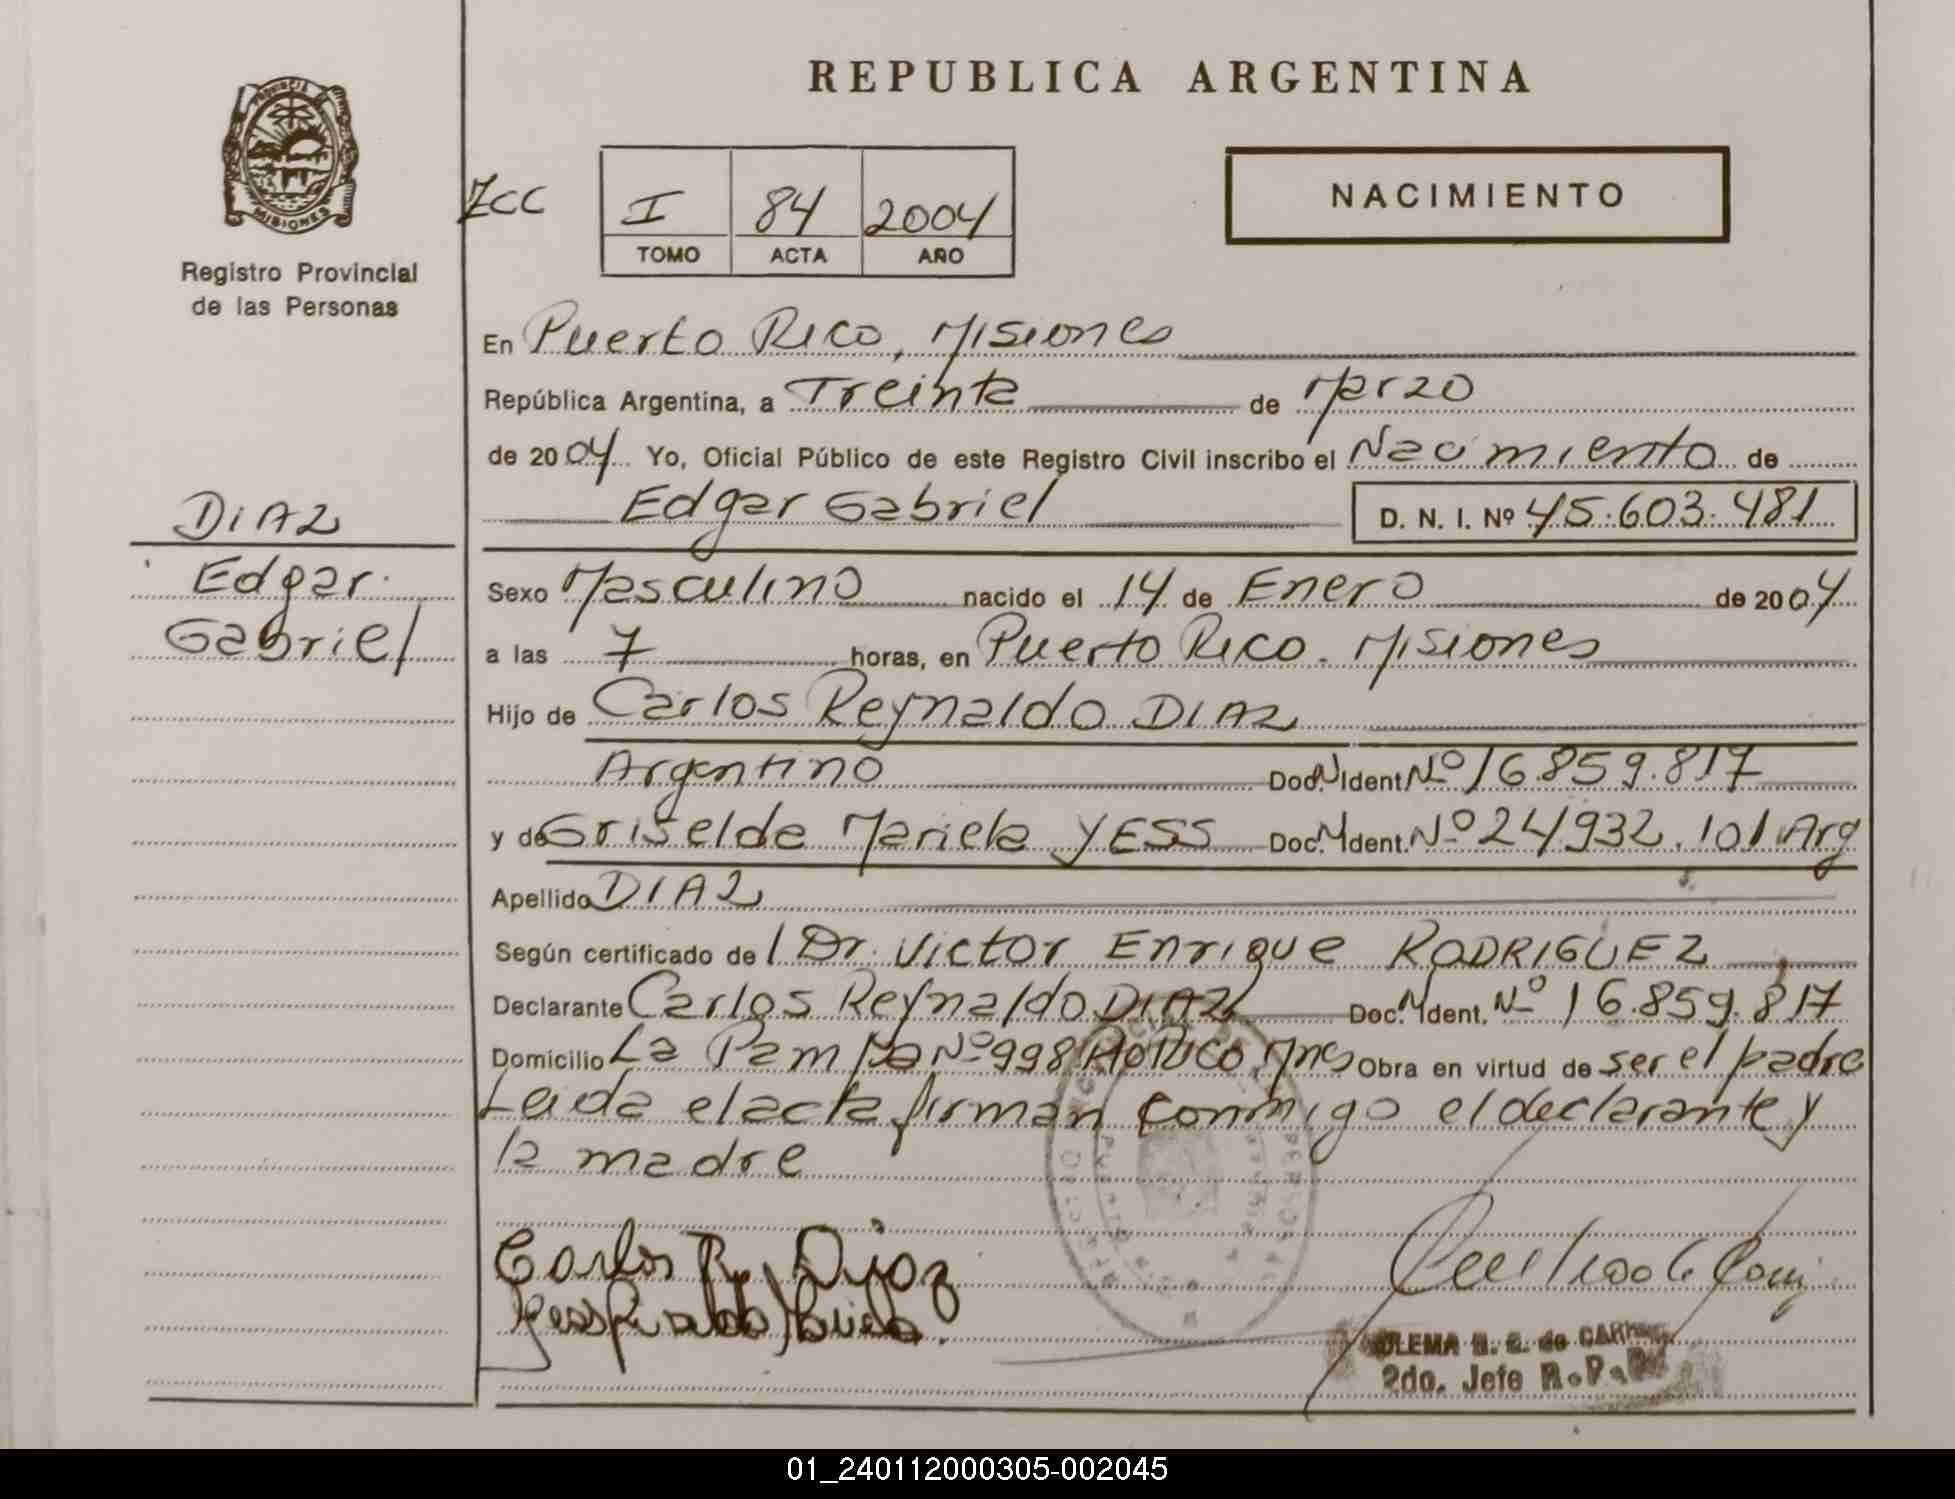 REPUBLICA ARGENTINA
PROVINCIA
MISIONES
Registro Provincial
de las Personas
ZCC
I 84 2004
TOMO ACTA AÑO
NACIMIENTO
En Puerto Rico, Misiones
República Argentina, a Treinta de Marzo
de 2004 Yo, Oficial Público de este Registro Civil inscribo el Nacimiento de
Edgar Gabriel D. N. I. Nº 45.603.481
DIAZ
Edgar
Gabriel
Sexo Masculino nacido el 14 de Enero de 2004
a las 7 horas, en Puerto Rico. Misiones
Hijo de Carlos Reynaldo DIAZ
Argentino Doc. N Ident. Nº 16.859.817
y de Griselda Mariela YESS Doc. N Ident. Nº 24932.101 Arg
Apellido DIAZ
Según certificado de l Dr. Victor Enrique RODRIGUEZ
Declarante Carlos Reynaldo DIAZ Doc. N Ident. Nº 16.859.817
Domicilio La Pampa Nº 998 Obra en virtud de ser el padre
Leida el acta firman conmigo el declarante y
la madre
Carlos R. Diaz
2do. Jefe R.P.P.
01_240112000305-002045